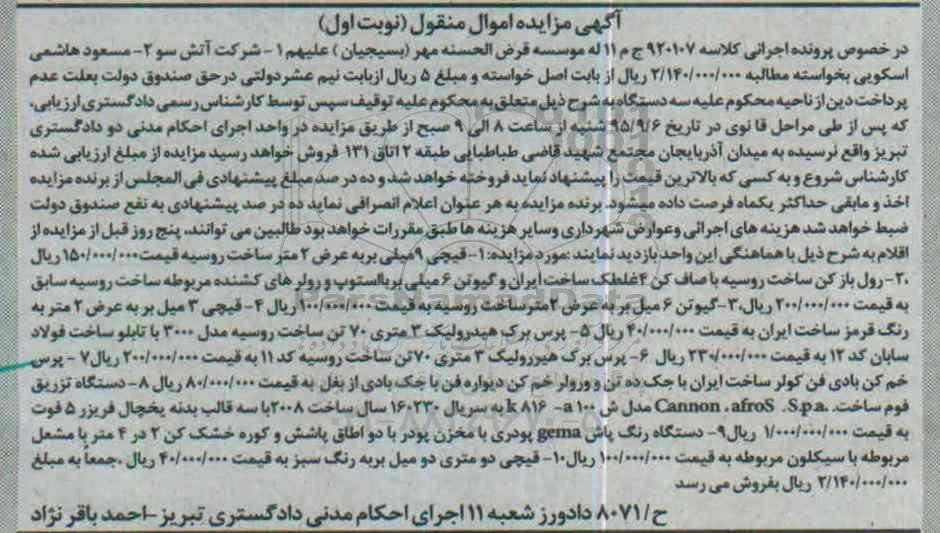 آگهی مزایده اموال منقول (نوبت اول)
در خصوص پرونده اجرائی کلاسه ۹۲۰۱۰۷ ج م ۱۱ له موسسه قرض الحسنه مهر (بسیجیان) علیهم ۱- شرکت آتش سو ۲- مسعود هاشمی
اسکویی بخواسته مطالبه ۲/۱۴۰/۰۰۰/۰۰۰ ریال از بابت اصل خواسته و مبلغ ۵ ریال ازبابت نیم عشر دولتی درحق صندوق دولت بعلت عدم
پرداخت دین از ناحیه محکوم علیه سه دستگاه به شرح ذیل متعلق به محکوم علیه توقیف سپس توسط کارشناس رسمی دادگستری ارزیابی،
که پس از طی مراحل قا نوی در تاریخ ۹۵/۹/۶ شنبه از ساعت ۸ الی ۹ صبح از طریق مزایده در واحد اجرای احکام مدنی دو دادگستری
تبریز واقع نرسیده به میدان آذربایجان مجتمع شهید قاضی طباطبایی طبقه ۲ اتاق ۱۳۱ فروش خواهد رسید مزایده از مبلغ ارزیابی شده
کارشناس شروع و به کسی که بالاترین قیمت را پیشنهاد نماید فروخته خواهد شد و ده در صد مبلغ پیشنهادی فی المجلس از برنده مزایده
اخذ و مابقی حداکثر یکماه فرصت داده میشود. برنده مزایده به هر عنوان اعلام انصرافی نماید ده در صد پیشنهادی به نفع صندوق دولت
ضبط خواهد شد هزینه های اجرائی وعوارض شهرداری وسایر هزینه ها طبق مقررات خواهد بود طالبین می توانند، پنج روز قبل از مزایده از
اقلام به شرح ذیل با هماهنگی این واحد بازدید نمایند :مورد مزایده: ۱- قیچی ۹ میلی بر به عرض ۲ متر ساخت روسیه قیمت ۱۵۰/۰۰۰/۰۰۰ ریال
۲۰- رول باز کن ساخت روسیه با صاف کن ۴ غلطک ساخت ایران و گیوتن ۶ میلی بر بااستوپ و رولر های کشنده مربوطه ساخت روسیه سابق
به قیمت ۲۰۰/۰۰۰/۰۰۰ ریال،۳- گیوتن ۶ میل بر به عرض ۲ مترساخت روسیه به قیمت ۱۰۰/۰۰۰/۰۰۰ ریال ۴- قیچی ۳ میل بر به عرض ۲ متر به
رنگ قرمز ساخت ایران به قیمت ۴۰/۰۰۰/۰۰۰ ریال ۵- پرس برک هیدرولیک ۳ متری ۷۰ تن ساخت روسیه مدل ۳۰۰۰ با تابلو ساخت فولاد
سابان کد ۱۲ به قیمت ۲۳۰/۰۰۰/۰۰۰ ریال ۶- پرس برک هیدرولیک ۳ متری ۷۰ تن ساخت روسیه کد ۱۱ به قیمت ۲۰۰/۰۰۰/۰۰۰ ریال ۷- پرس
خم کن بادی فن کولر ساخت ایران با جک ده تن و ورولر خم کن دیواره فن با جک بادی از بغل به قیمت ۸۰/۰۰۰/۰۰۰ ریال ۸- دستگاه تزریق
فوم ساخت. Cannon .afroS .S.p.a مدل ش ۱۰۰ a- ۸۱۶ k به سریال ۱۶۰۲۳۰ سال ساخت ۲۰۰۸ با سه قالب بدنه یخچال فریزر ۵ فوت
به قیمت ۱/۰۰۰/۰۰۰/۰۰۰ ریال ۹- دستگاه رنگ پاش gema پودری با مخزن پودر با دو اطاق پاشش و کوره خشک کن ۲ در ۴ متر با مشعل
مربوطه با سیکلون مربوطه به قیمت ۱۰۰/۰۰۰/۰۰۰ ریال ۱۰- قیچی دو متری دو میل بربه رنگ سبز به قیمت ۴۰/۰۰۰/۰۰۰ ریال .جمعا به مبلغ
۲/۱۴۰/۰۰۰/۰۰۰ ریال بفروش می رسد
ح/ ۸۰۷۱ دادورز شعبه ۱۱ اجرای احکام مدنی دادگستری تبریز -احمد باقر نژاد